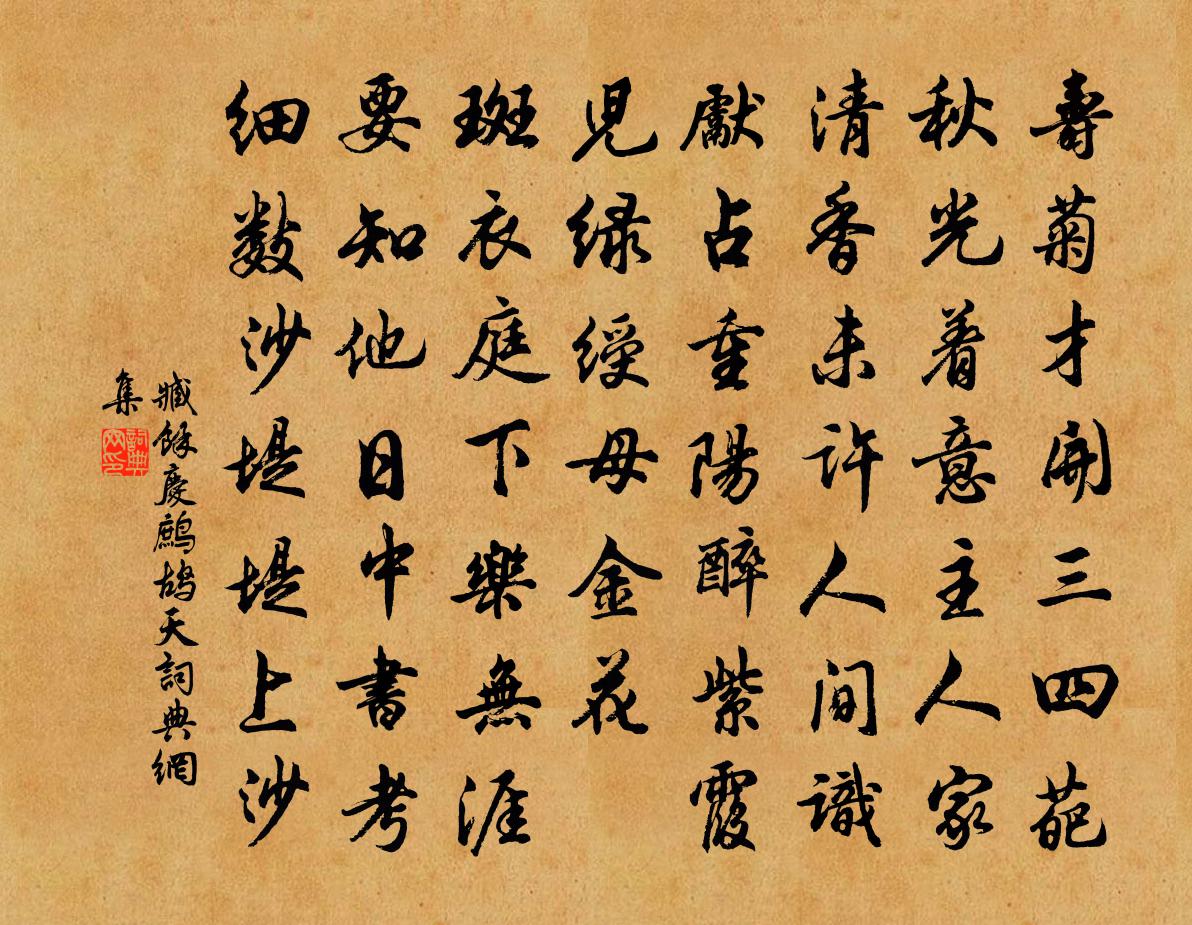 壽菊才開三四葩
秋光着意主人家
清香未許人間識
獻占重陽醉紫霞
兒緑綬母金花
斑衣庭下樂無涯
要知他日中書考
細數沙堤堤上沙
臧餘慶鷓鴣天詞典網
集
詞典網印